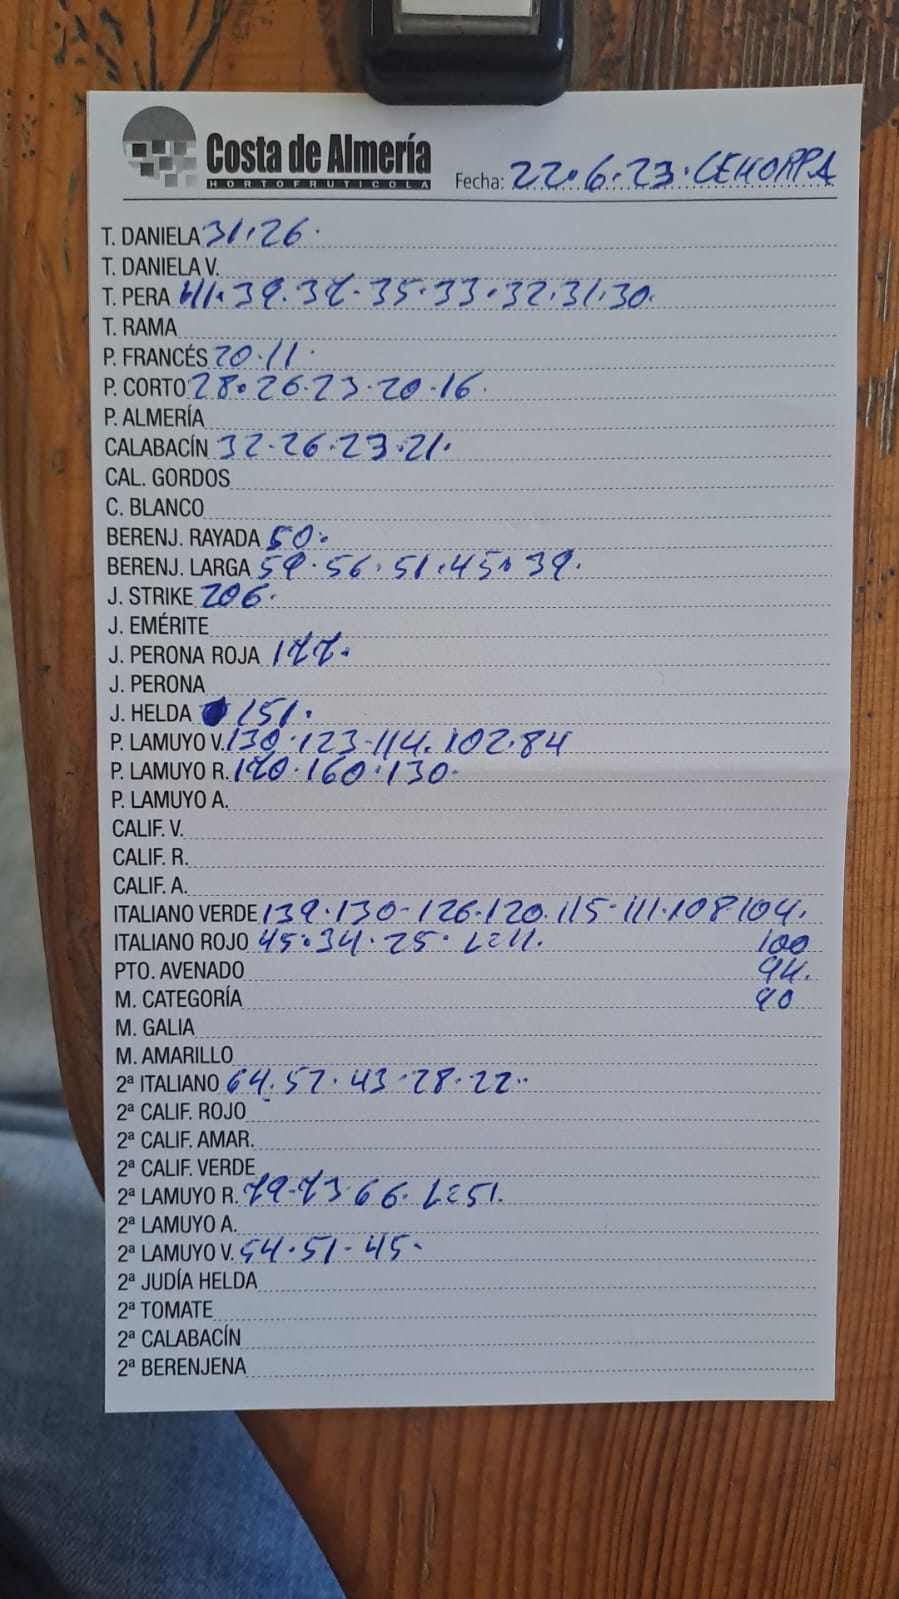 Costa de Almería
HORTOFRUTICOLA
Fecha: 22.6.23.CEHORPA
T. DANIELA 31.26.
T. DANIELA V.
T. PERA 41.39.37.35.33.32.31.30.
T. RAMA
P. FRANCÉS 20.11.
P. CORTO 28.26.23.20.16.
P. ALMERÍA
CALABACÍN 32.26.23.21.
CAL. GORDOS
C. BLANCO
BERENJ. RAYADA 50.
BERENJ. LARGA 59.56.51.45.39.
J. STRIKE 206.
J. EMÉRITE
J. PERONA ROJA 177.
J. PERONA
J. HELDA 151.
P. LAMUYO V. 130.123-114.102.84
P. LAMUYO R. 170.160.130.
P. LAMUYO A.
CALIF. V.
CALIF. R.
CALIF. A.
ITALIANO VERDE 139.130-126.120.115-111.108 104.
ITALIANO ROJO 45.34.25. 100
PTO. AVENADO 94.
M. CATEGORÍA 90
M. GALIA
M. AMARILLO
2ª ITALIANO 64.57.43.28.22..
2ª CALIF. ROJO
2ª CALIF. AMAR.
2ª CALIF. VERDE
2ª LAMUYO R. 79-73 66. L=51.
2ª LAMUYO A.
2ª LAMUYO V. 54.51-45.
2ª JUDÍA HELDA
2ª TOMATE
2ª CALABACÍN
2ª BERENJENA